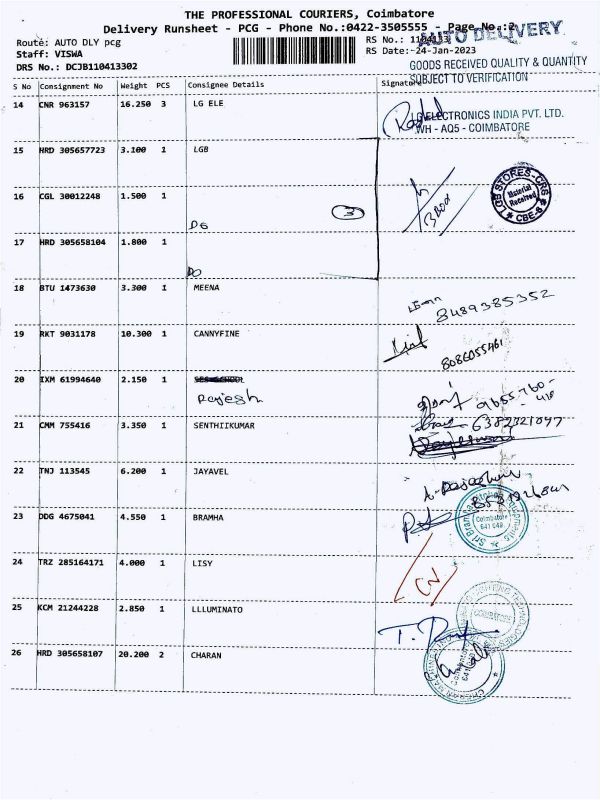 THE PROFESSIONAL COURIERS, Coimbatore
Delivery Runsheet - PCG - Phone No.:0422-3505555 - Page No.:2
AUTO DELIVERY
Route: AUTO DLY pcg
RS No.: 1104133
Staff: VISWA
RS Date:-24-Jan-2023
DRS No.: DCJB110413302
GOODS RECEIVED QUALITY & QUANTITY
SUBJECT TO VERIFICATION
S No Consignment No Weight PCS Consignee Details Signature
14 CNR 963157 16.250 3 LG ELE
LG ELECTRONICS INDIA PVT. LTD.
WH - AQ5 - COIMBATORE
15 HRD 305657723 3.100 1 LGB
LGB STORES-CRG
Material
Received
CBE-6
16 CGL 30012248 1.500 1
3
DG
17 HRD 305658104 1.800 1
DO
18 BTU 1473630 3.300 1 MEENA
8489385352
19 RKT 9031178 10.300 1 CANNYFINE
8086055461
20 IXM 61994640 2.150 1
Rajesh
21 CMM 755416 3.350 1 SENTHIIKUMAR
6382321097
22 TNJ 113545 6.200 1 JAYAVEL
23 DDG 4675041 4.550 1 BRAMHA
Coimbatore
641 048
24 TRZ 285164171 4.000 1 LISY
25 KCM 21244228 2.850 1 LLLUMINATO
COIMBATORE
26 HRD 305658107 20.200 2 CHARAN